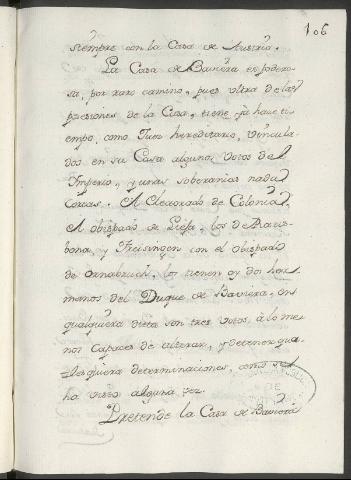 106
siempre con la Casa de Austria.
La Casa de Baviera es podero-
sa, por raro camino, pues ultra de las
posesiones de la Casa, tiene ya hace ti-
empo, como Juro hereditario, vincula-
dos en su Casa algunos votos del
Imperio, y unas soberanias nada
cortas. El Electorado de Colonia,
el obispado de Lieja, los de Ratis-
bona, y Freisingen con el obispado
de Osnabruck, los tienen oy dos her-
manos del Duque de Baviera, en
qualquiera dieta son tres votos, à lo me-
nos capaces de alterar, y detener qua-
lesquiera determinaciones, como se
ha visto alguna vez.
Pretende la Casa de Baviera